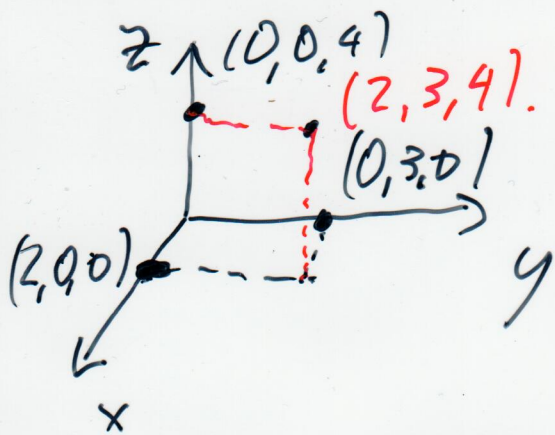 z (0,0,4)
(2,3,4).
(0,3,0)
(2,0,0)
y
x